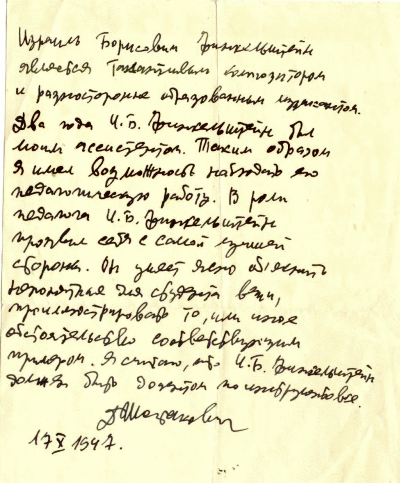 Израиль Борисович Финкельштейн
является талантливым композитором
и разносторонне образованным музыкантом.
Два года И. Б. Финкельштейн был
моим ассистентом. Таким образом
я имел возможность наблюдать его
педагогическую работу. В роли
педагога И. Б. Финкельштейн
проявил себя с самой лучшей
стороны. Он умеет ясно объяснить
непонятная для студента вещи,
проиллюстрировать то, или иное
обстоятельство соответствующим
примером. Я считаю, что И. Б. Финкельштейн
должен быть доцентом по инструментовке.
Д Шостакович
17 X 1947.